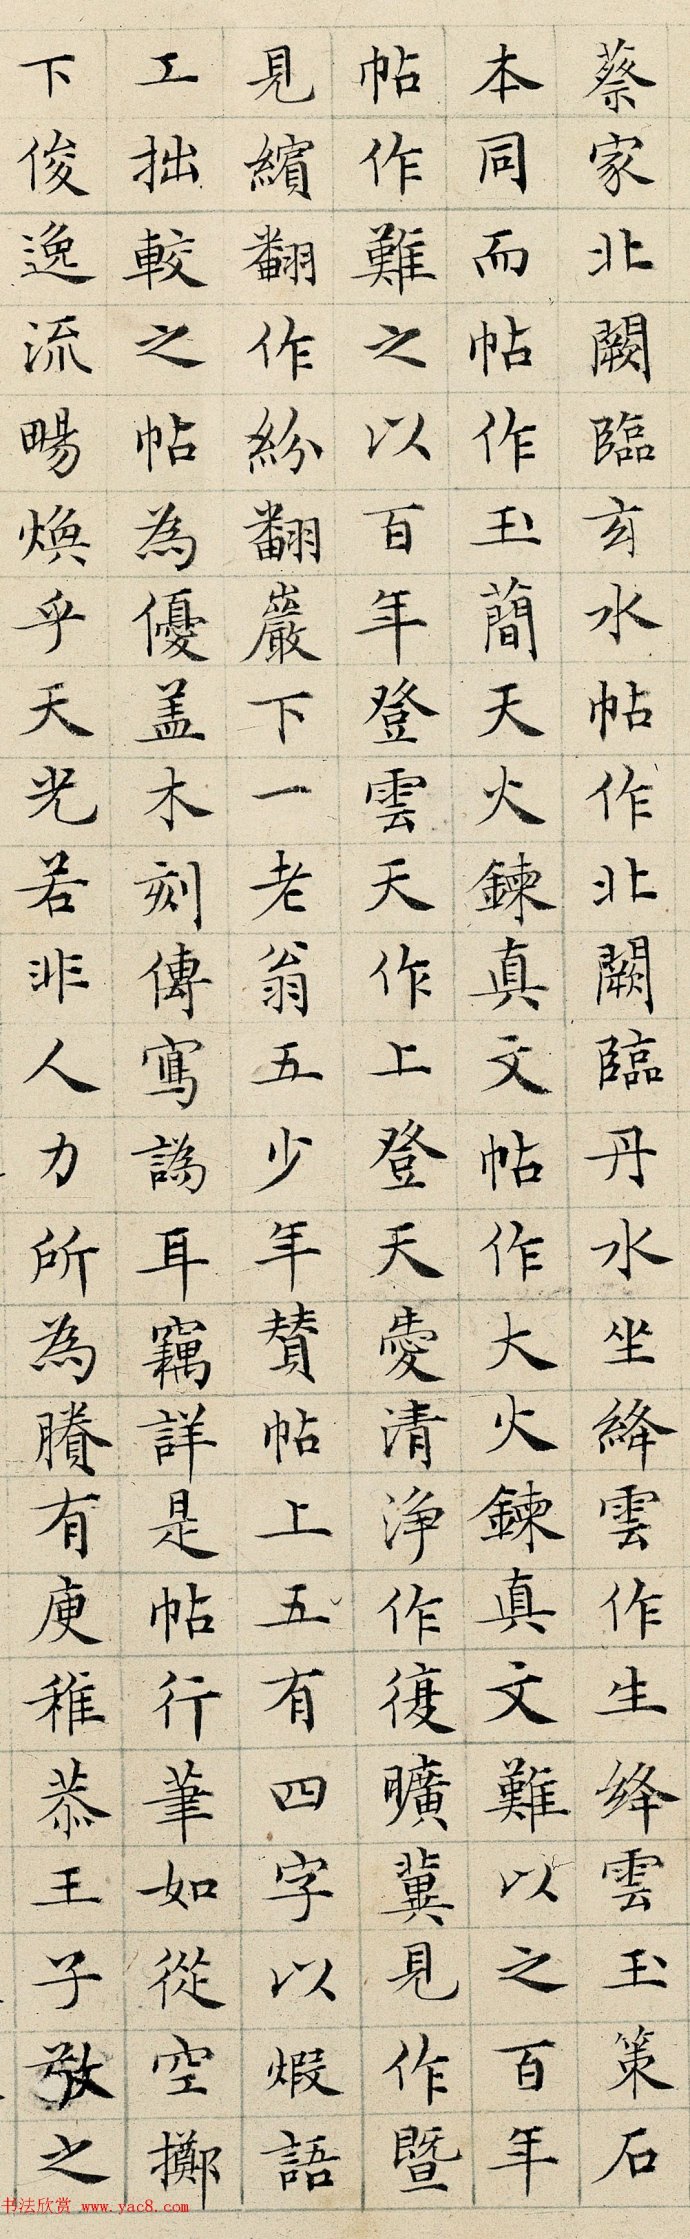 蔡家北闕臨玄水帖作北闕臨丹水坐絳雲作生絳雲玉策石
本同而帖作玉蕳天火鍊真文帖作大火鍊真文難以之百年
帖作難之以百年登雲天作上登天愛清淨作復曠冀見作暨
見繽翻作紛翻巖下一老翁五少年賛帖上五有四字以煆語
工拙較之帖為優盖木刻傳寫譌耳竊詳是帖行筆如從空擲
下俊逸流暘煥乎天光若非人力所為賸有庾稚恭王子敬之
书法欣赏 www.yac8.com